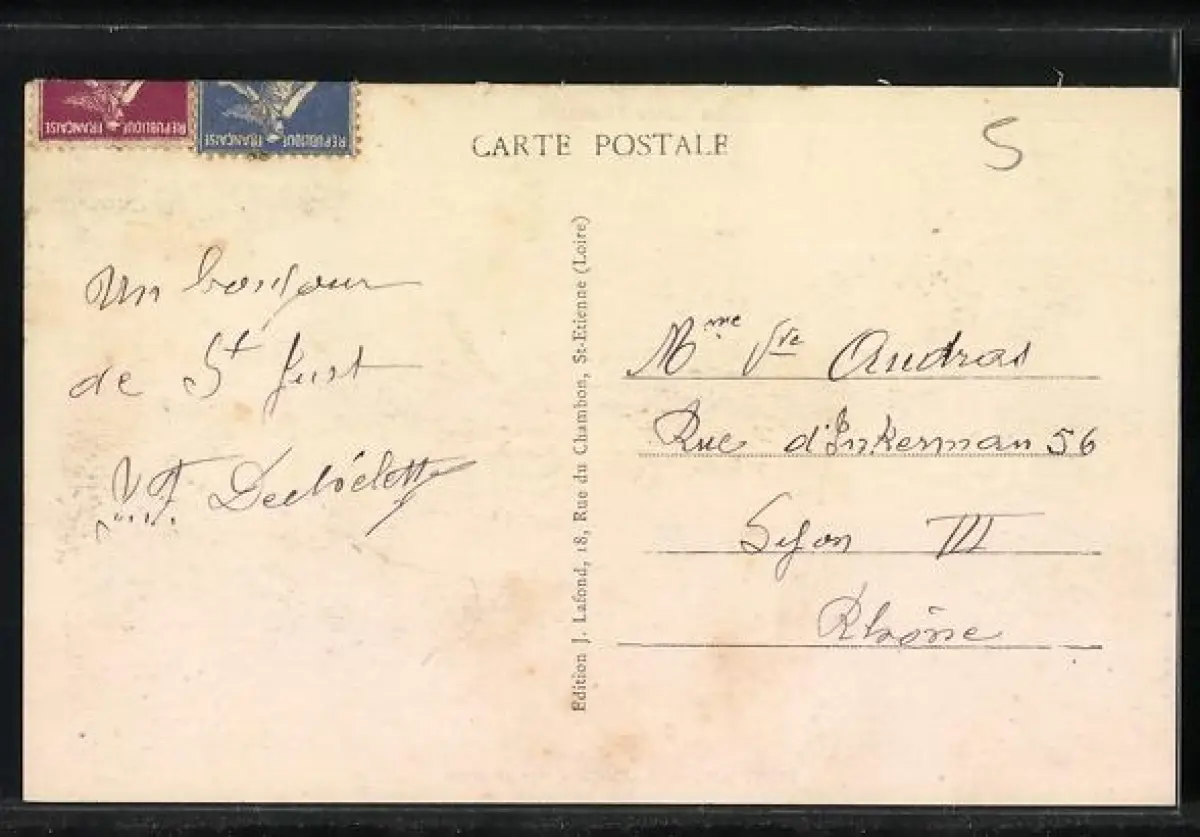 REPUBLIQUE FRANÇAISE
REPUBLIQUE FRANÇAISE
CARTE POSTALE
5
Un bonjour
de St Just
Edition J. Lafond, 18, Rue du Chambon, St-Etienne (Loire)
Mme Vve Audras
Rue d'Inkerman 56
Lyon III
Rhône